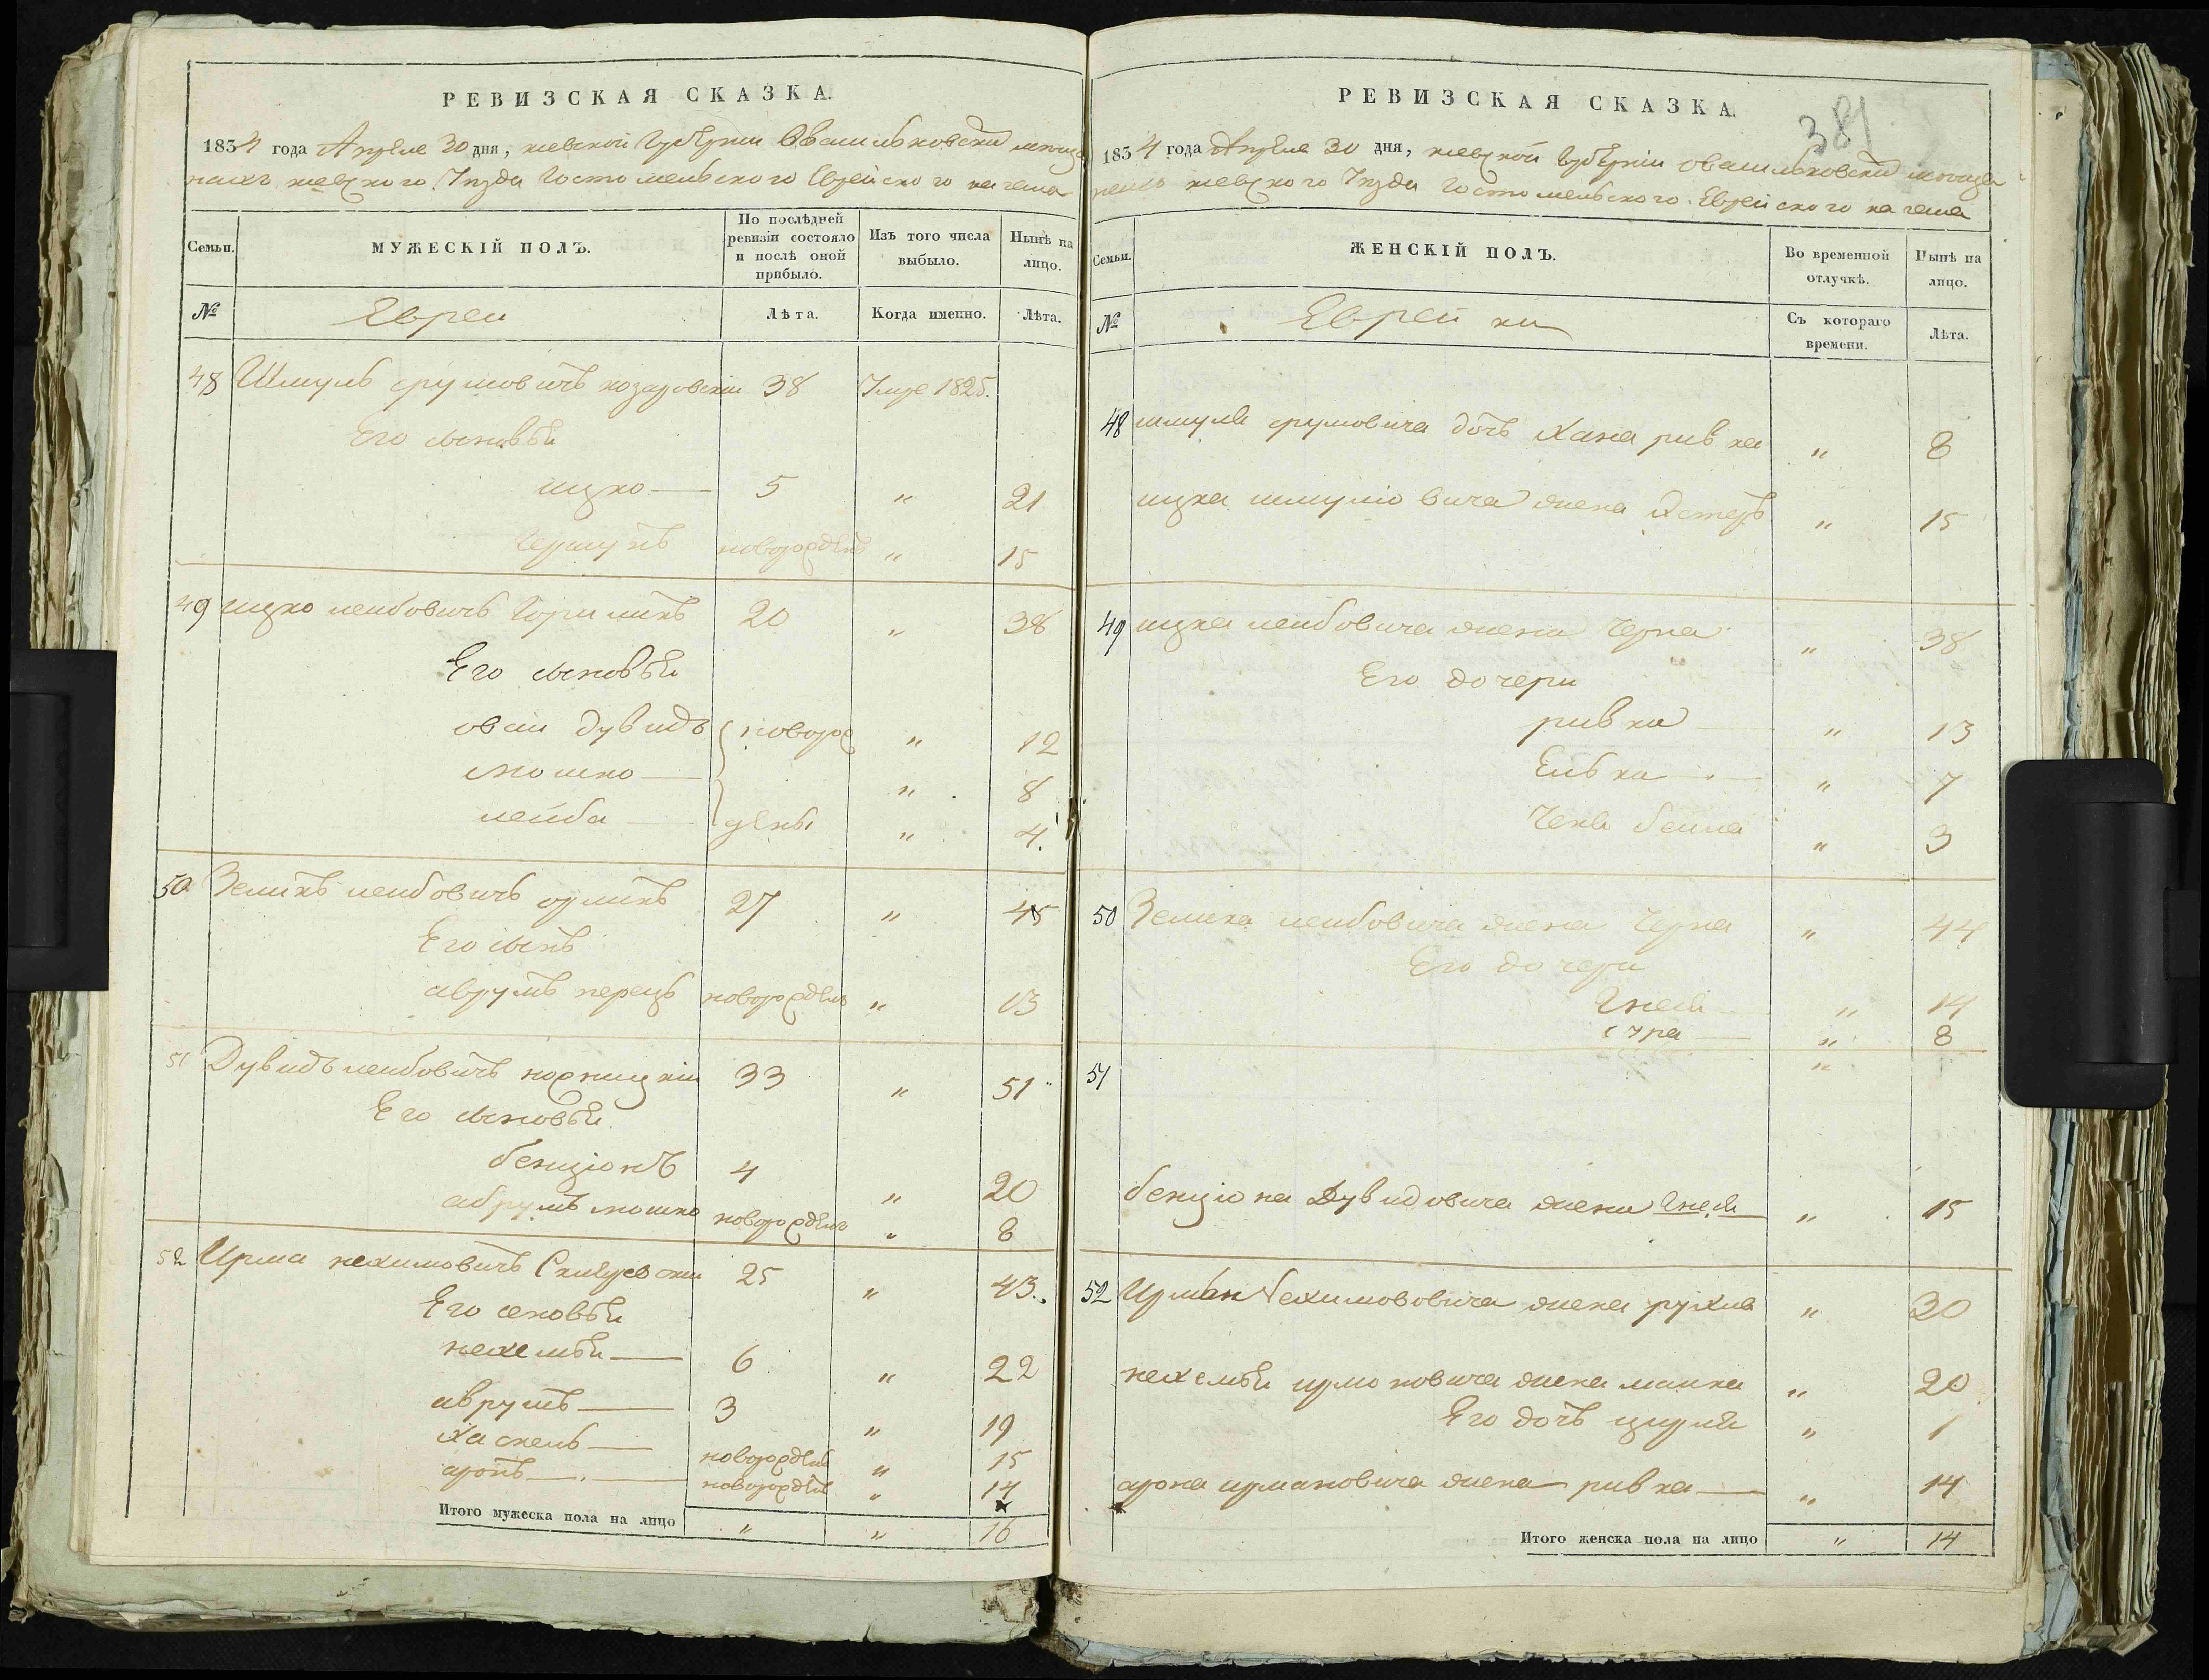 РЕВИЗСКАЯ СКАЗКА.
1834 года Апреля 30 дня, киевской Губернии Овасильковский мещанахъ
киевского Уезда Гостомельского Еврейского кагала
Семьи.
МУЖЕСКІЙ ПОЛЪ.
По послѣдней ревизіи состояло и послѣ оной прибыло.
Изъ того числа выбыло.
Нынѣ на лицо.
№
Евреи
Лѣта.
Когда именно.
Лѣта.
48 Шмуль срумовичъ козаровскій 38 Умре 1825.
Его сыновьи
ицко 5 " 21
Гершунъ новорожденъ " 15
49 ицко леибовичъ Гориликъ 20 " 38
Его сыновьи
овсіи Дувидъ новорож " 12
мошко " 8
леиба дены " 4.
50 Зеликъ леибовичъ орликъ 27 " 45
Его сынъ
аврумъ перецъ новорожденъ " 13
51 Дувидъ леибовичъ корницкіи 33 " 51
Его сыновьи
бенціонъ 4 " 20
абрумъ мошко новорожденъ " 8
52 Ирма нехимовичъ 25 " 43.
Его сновьи
нехемьи 6 " 22
аврумъ 3 " 19
Хаскель новорожденъ " 15
аронъ новорожденъ " 14
Итого мужеска пола на лицо " " 16
РЕВИЗСКАЯ СКАЗКА.
381
1834 года Апреля 30 дня, киевской Губерніи овасильковский мещанахъ
киевского Уезда Гостомельского Еврейского кагала
Семьи.
ЖЕНСКІЙ ПОЛЪ.
Во временной отлучкѣ.
Нынѣ на лицо.
№
Еврейки
Съ котораго времени.
Лѣта.
48 шмуля срумовича дочь Хана ривка " 8
ицка шмулiовича жена Хстеръ " 15
49 ицка леибовича жена Черна " 38
Его дочери
ривка " 13
Еибка " 7
Чена беила " 3
50 Зелика леибовича жена Черна " 44
Его дочери
Гнеся " 14
сура " 8
51 "
бенціона Дувидовича жена Гнеся " 15
52 Ирман Нехимововича жена рухля " 30
нехемьи ирмоновича жена малка " 20
Его дочь ципра " 1
арона ирмановича жена ривка " 14
Итого женска пола на лицо " 14